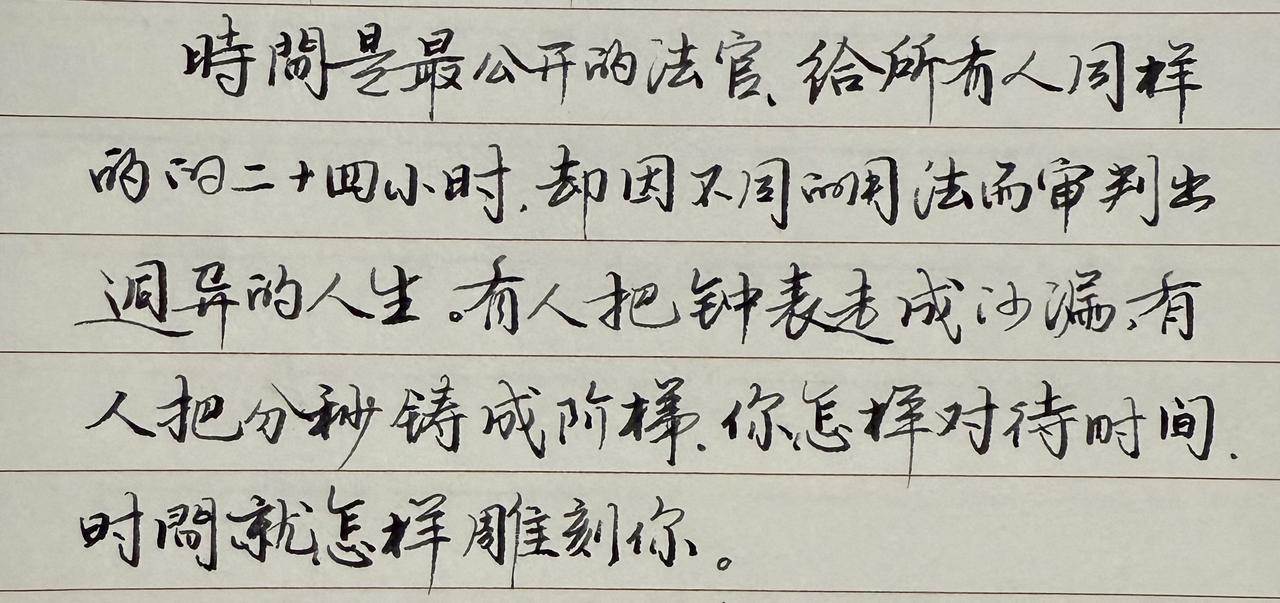 時間是最公开的法官、给所有人同样
的的二十四小时,却因不同的用法而审判出
迥异的人生。有人把钟表走成沙漏,有
人把分秒铸成阶梯.你怎样对待时间.
时間就怎样雕刻你。